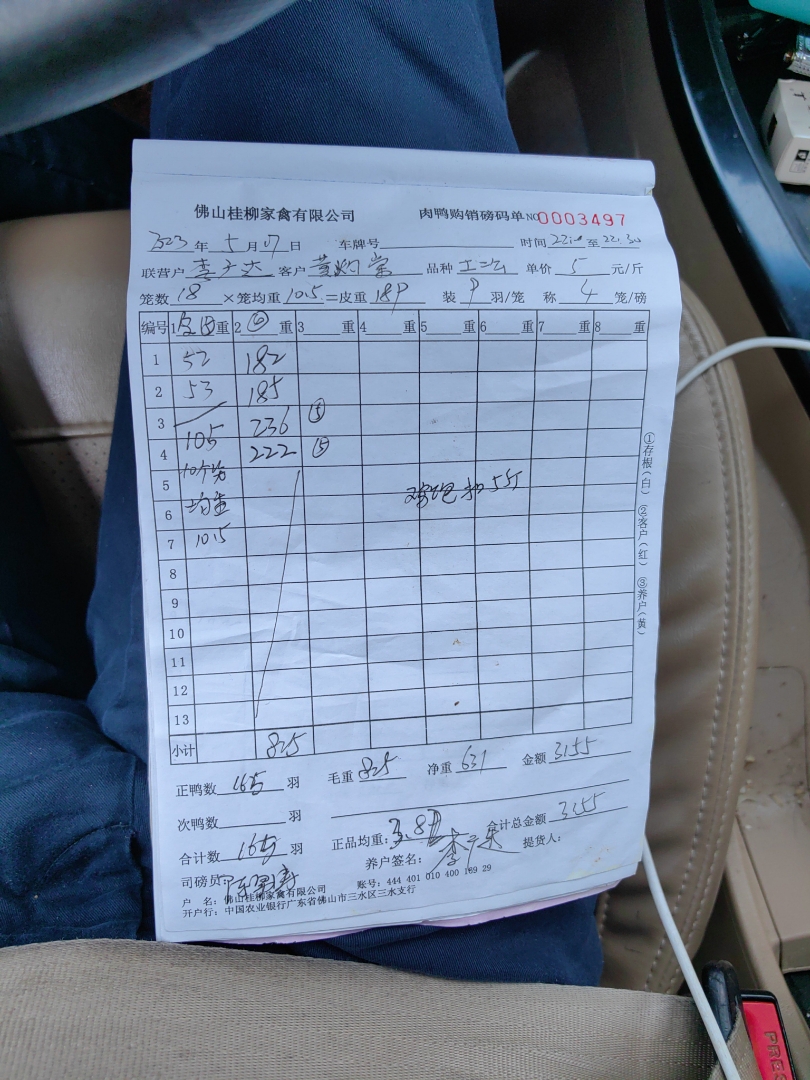 佛山桂柳家禽有限公司 肉鸭购销磅码单 NO 0003497
2023 年 5 月 07 日 车牌号 时间 至
联营户 李 客户 黄灼棠 品种 单价 5 元/斤
笼数 18 ×笼均重 10.5 =皮重 189 装 9 羽/笼 称 4 笼/磅
编号 1 重 2 ⑥ 重 3 重 4 重 5 重 6 重 7 重 8 重
1 52 182
2 53 185
3 236 ⑤
4 105 222 ⑤
5 10个
6 均重
7 10.5
扣5斤
8
9
10
11
12
13
小计 825
①存根(白) ②客户(红) ③养户(黄)
正鸭数 羽 毛重 825 净重 631 金额 3155
次鸭数 羽
合计数 羽 正品均重: 合计总金额 3255
司磅员 养户签名: 李 提货人:
户 名: 佛山桂柳家禽有限公司 账号: 444 401 010 400 169 29
开户行: 中国农业银行广东省佛山市三水区三水支行
PRESS